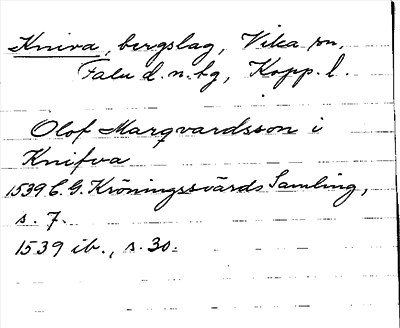 Kniva, bergslag, Vika sn,
Falu d. n. bg, Kopp. l.
Olof Marqvardsson i
Knifva
1539 C. G. Kröningssvärds Samling,
s. 7.
1539 ib., s. 30.